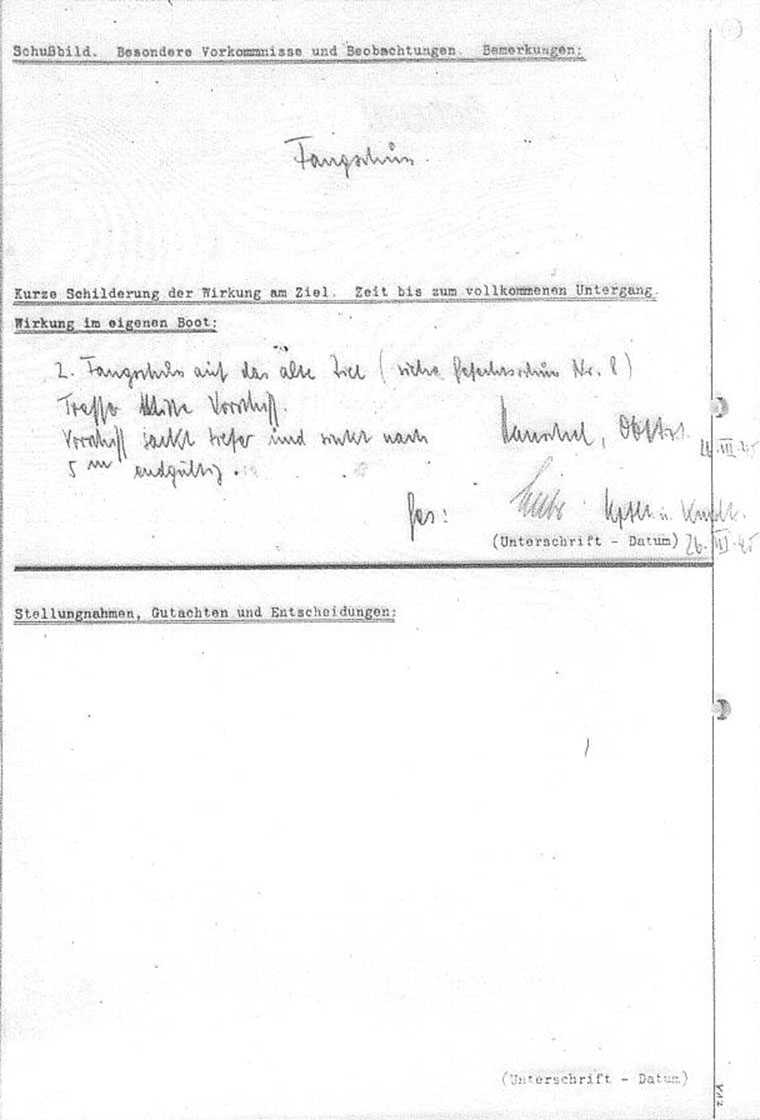 Schußbild. Besondere Vorkommnisse und Beobachtungen. Bemerkungen:
Fangschuss.
Kurze Schilderung der Wirkung am Ziel. Zeit bis zum vollkommenen Untergang.
Wirkung im eigenen Boot:
2. Fangschuss auf das alte Ziel (siehe Gefechtsschuss Nr. 8)
Treffer Mitte Vorschiff.
Vorschiff sackt tiefer und sinkt nach
5 m endgültig.
Oblt.
Ges: Kptlt. u. Kmdt.
(Unterschrift - Datum) 26.III.45
Stellungnahmen, Gutachten und Entscheidungen:
(Unterschrift - Datum)